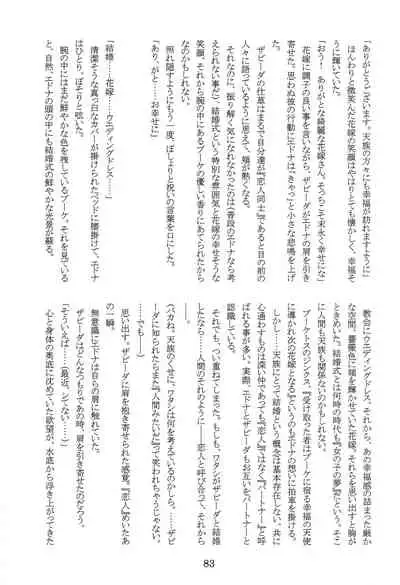 「ありがとうございます。天族の方々にも幸福が訪れますように」
ほんわりと微笑んだ花嫁の笑顔はやはりとても懐かしく、幸福そ
うに輝いていた。
「おう！ ありがとな綺麗な花嫁さん。そっちこそ末永く幸せにな」
花嫁に調子の良い事を言いながら、ザビーダがエドナの肩を引き
寄せた。思わぬ彼の行動にエドナは『きゃっ』と小さな悲鳴を上げ
る。
ザビーダの仕草はまるで自分達が『恋人同士』であると目の前の
人々に語っているように思えて、頬が熱くなる。
それなのに、振り解く気になれなかったのは（普段のエドナなら考
えられない事だ）、結婚式という特別な雰囲気と花嫁の幸せそうな
笑顔、それから腕の中にあるブーケの優しい香りにあてられたから
なのかもしれない。
照れ隠すようにもう一度、ぼしょりと祝いの言葉を口にした。
「あり、がと……お幸せに」
「結婚……花嫁……ウエディングドレス……」
ぽそり、ぽそりと呟いた。
清潔そうな真っ白なカバーが掛けられたベッドに腰掛けて、エドナ
はひとり。
腕の中にはまだ鮮やかな色を残しているブーケ。それを見ている
と、自然、エドナの頭の中にも結婚式の鮮やかな光景が蘇る。
教会にウエディングドレス、それから、あの幸福感の詰まった厳か
な空間。薔薇色に頬を輝かせていた花嫁。それらを思い出すと胸が
ときめいた。結婚式とは何時の時代も『女の子の夢』だという。
ブーケトスのジンクス、『受け取った者はブーケに宿る幸福の天使
に導かれ次の花嫁となる』というのもエドナの想いに拍車を掛ける。
しかし……天族にとって結婚という概念は基本存在しない。共に
心通わすものは深い仲であっても『恋人』ではなく『パートナー』と呼
ばれる事が多い。実際、エドナとザビーダもお互いをパートナーと
認識している。
それでも、つい重ねてしまった。もしも、ワタシがザビーダと結婚
したなら……人間のそれのように……恋人と呼び合って、それから
……でも……
（バカね、天族のくせに、ワタシは何を考えているのかしら……ザビ
ーダに知られたらまた『人間みたいだ』って笑われちゃうじゃない）
思い出す。ザビーダに肩を抱き寄せられた感覚。『恋人』めいたあ
の一瞬。
無意識にエドナは自らの肩に触れていた。
ザビーダはどんなつもりであの時、肩を引き寄せたのだろう。
「そういえば……（最近、シてない……）」
心と身体の奥底に沈めていた欲望が、水底から浮き上がってきた
83